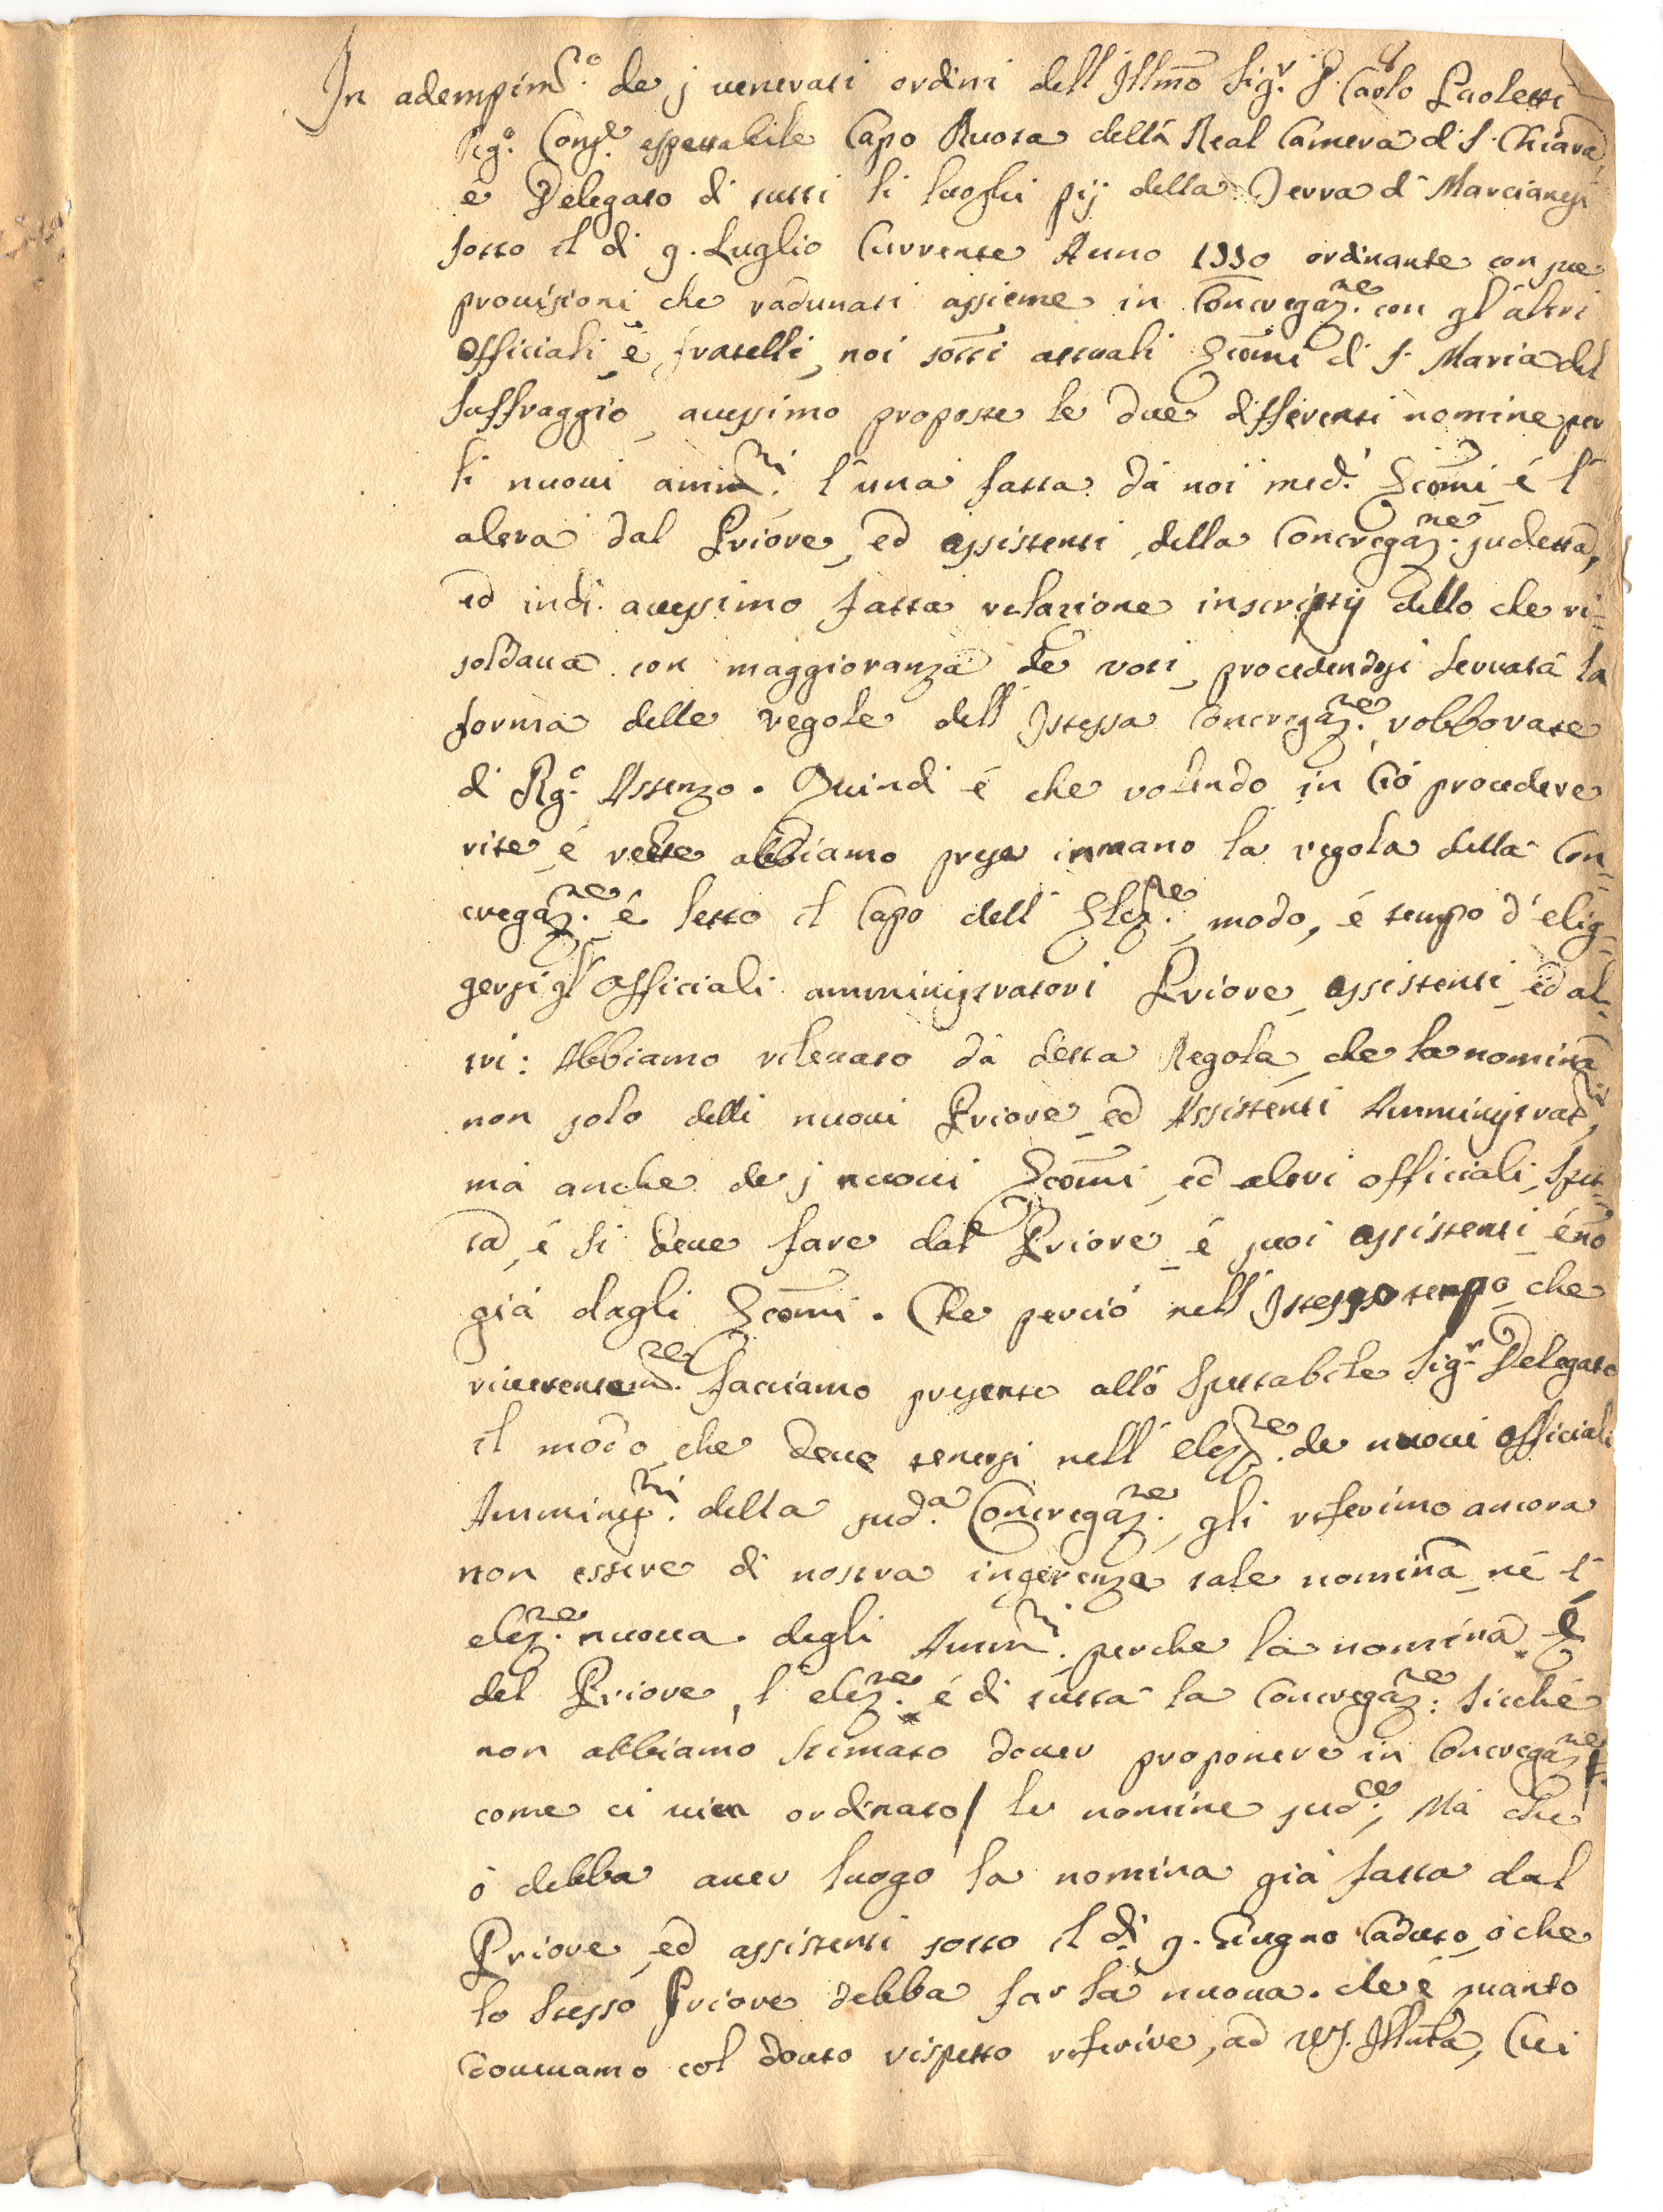 In adempim.to de j venerati ordini dell'Illmo Sig.r D. Carlo Paoletti
Reg.o Cons.re espettabile Capo Ruota della Real Camera di S. Chiara,
e Delegato di tutti li luoghi pij della Terra di Marcianesi
sotto il di 9. Luglio Corrente Anno 1770 ordinante con sue
provisioni che radunati assieme in Concregaz.ne con gl'altri
officiali, e fratelli, noi sotti attuali Econmi di S. Maria del
Suffraggio, avessimo proposte le due differenti nomine per
li nuovi amm.ri l'una fatta dà noi med.i Economi, è l'
altra dal Priore, ed assistenti, della Concregaz.ne sudetta,
ed indi avessimo fatta relazione inscriptij dello che ri=
soldava con maggioranza de voti, procedendosi servata la
forma delle regole dell'Istessa Concregaz.ne robborate
di Rg.o Assenzo. Quindi è che volendo in Ciò procedere
rite, è recte abbiamo preso inmano la regola della Con=
cregaz.ne è letto il Capo dell'Elez.ne, modo, è tempo d'elig=
gersi gl'officiali amministratori Priore, assistenti, ed al=
tri: Abbiamo rilevato dà detta Regola, che la nomina
non solo delli nuovi Priore, ed Assistenti Amministrat.ri,
mà anche de j nuovi Econmi, ed altri officiali, spet=
ta, è si deve fare dal Priore, è suoi assistenti, è nõ
già dagli Econmi. Che perciò nell'Istesso tempo, che
riverentem.te facciamo presente allo Spettabile Sig.r Delegato
il modo, che deve tenersi nell'elez.ne de nuovi officiali
Amminis.ri della sud.a Concregaz.ne, gli riferimo ancora
non essere di nostra ingerenza tale nomina, nè l'
elez.ne nuova degli Amm.ri perche la nomina è
del Priore, l'elez.ne è di tutta la Concregaz.ne: sicchè
non abbiamo stimato dover proponere in Concregaz.ne/
come ci vien ordinato/ le nomine sud.ce, Mà che
ò debba aver luogo la nomina già fatta dal
Priore, ed assistenti sotto il di 9. Giugno Caduto, ò che
lo stesso Priore debba far la nuova. che è quanto
dovevamo col douto rispetto riferire, ad VS. Illma, Cui